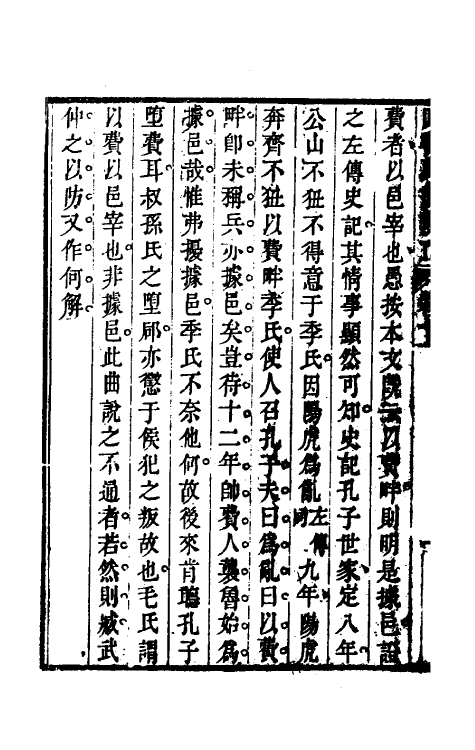 費者以邑宰也愚按本文既云以費畔則明是據邑證
之左傳史記其情事顯然可知史記孔子世家定八年
公山不狃不得意于季氏因陽虎為亂左傳同九年陽虎
奔齊不狃以費畔季氏使人召孔子夫曰為亂曰以費
畔卽未稱兵亦據邑矣豈待十二年帥費人襲魯始為
據邑哉惟弗擾據邑季氏不奈他何故後來肯聽孔子
墮費耳叔孫氏之墮郈亦懲于侯犯之叛故也毛氏謂
以費以邑宰也非據邑此曲說之不通者若然則臧武
仲之以防又作何解